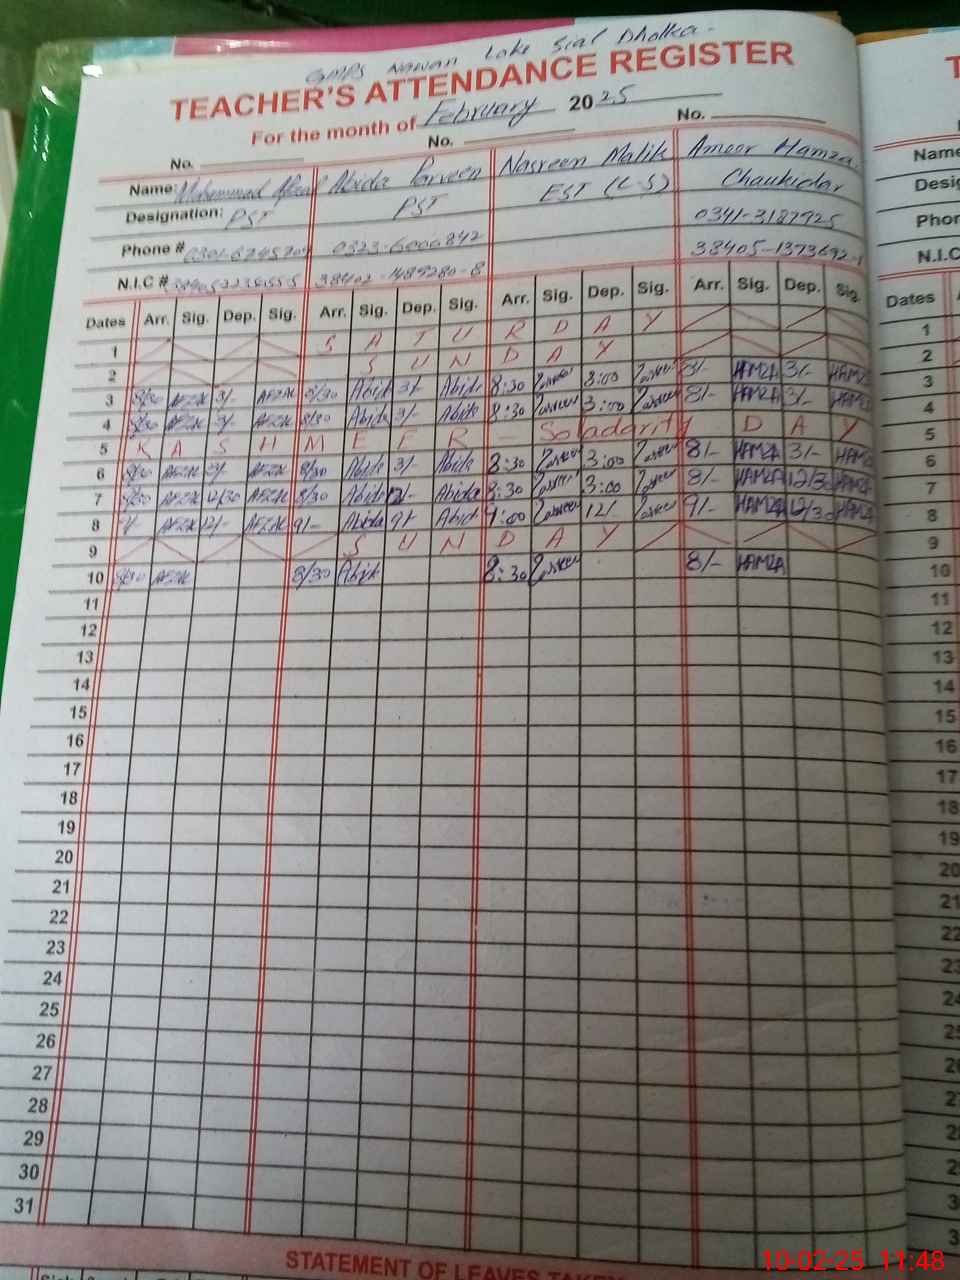 GMPS Nawan Loke Sial Dholka.
TEACHER'S ATTENDANCE REGISTER
For the month of February 2025
No. No. No.
Name: Mohammad Afzal Abida Parveen Nasreen Malik Ameer Hamza
Designation: PST PST EST (L.S) Chaukidar
Phone # 0323-6006842 0341-3187925
N.I.C # 38402-1489280-8 38405-1373692-1
Dates Arr. Sig. Dep. Sig. Arr. Sig. Dep. Sig. Arr. Sig. Dep. Sig. Arr. Sig. Dep. Sig.
1 S A T U R D A Y
2 S U N D A Y
3 8/30 AFZAL 3/- AFZAL 8/30 Abida 3/- Abida 8:30 8:00 8/- HAMZA 3/- HAMZA
4 8/30 AFZAL 3/- AFZAL 8/30 Abida 3/- Abida 8:30 3:00 8/- HAMZA 3/- HAMZA
5 K A S H M E E R Soladarity D A Y
6 8/30 AFZAL 3/- AFZAL 8/30 Abida 3/- Abida 8:30 3:00 8/- HAMZA 3/- HAMZA
7 8/30 AFZAL 12/30 AFZAL 8/30 Abida 12/- Abida 8:30 3:00 8/- HAMZA 12/30 HAMZA
8 9/- AFZAL 12/- AFZAL 9/- Abida Abida 9:00 12/- 9/- HAMZA 12/30 HAMZA
9 S U N D A Y
10 8/30 AFZAL 8/30 Abida 8:30 8/- HAMZA
11
12
13
14
15
16
17
18
19
20
21
22
23
24
25
26
27
28
29
30
31
STATEMENT OF LEAVES TAKEN
Name
Phon
N.I.C
Dates
1
2
3
4
5
6
7
8
9
10
11
12
13
14
15
16
17
18
19
20
10-02-25 11:48